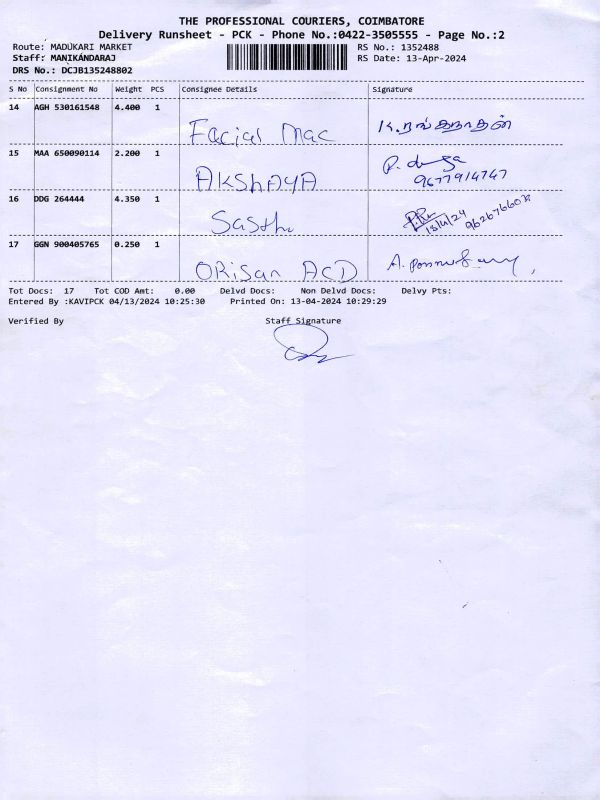 THE PROFESSIONAL COURIERS, COIMBATORE
Delivery Runsheet - PCK - Phone No.:0422-3505555 - Page No.:2
Route: MADUKARI MARKET RS No.: 1352488
Staff: MANIKANDARAJ RS Date: 13-Apr-2024
DRS No.: DCJB135248802
S No Consignment No Weight PCS Consignee Details Signature
14 AGH 530161548 4.400 1
Facial Mac K.ரங்கநாதன்
15 MAA 650090114 2.200 1
AKSHAYA 9677914747
16 DDG 264444 4.350 1
Sasthi 13/4/24
17 GGN 900405765 0.250 1
ORiSan ACD
Tot Docs: 17 Tot COD Amt: 0.00 Delvd Docs: Non Delvd Docs: Delvy Pts:
Entered By :KAVIPCK 04/13/2024 10:25:30 Printed On: 13-04-2024 10:29:29
Verified By Staff Signature